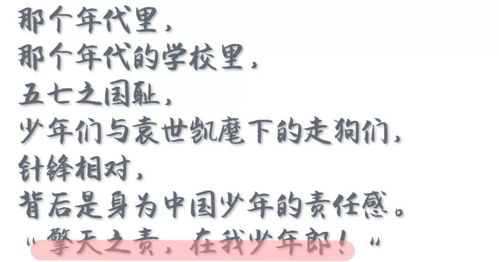 那个年代里，
那个年代的学校里，
五七之国耻，
少年们与袁世凯麾下的走狗们，
针锋相对，
背后是身为中国少年的责任感。
“擎天之责，在我少年郎！”